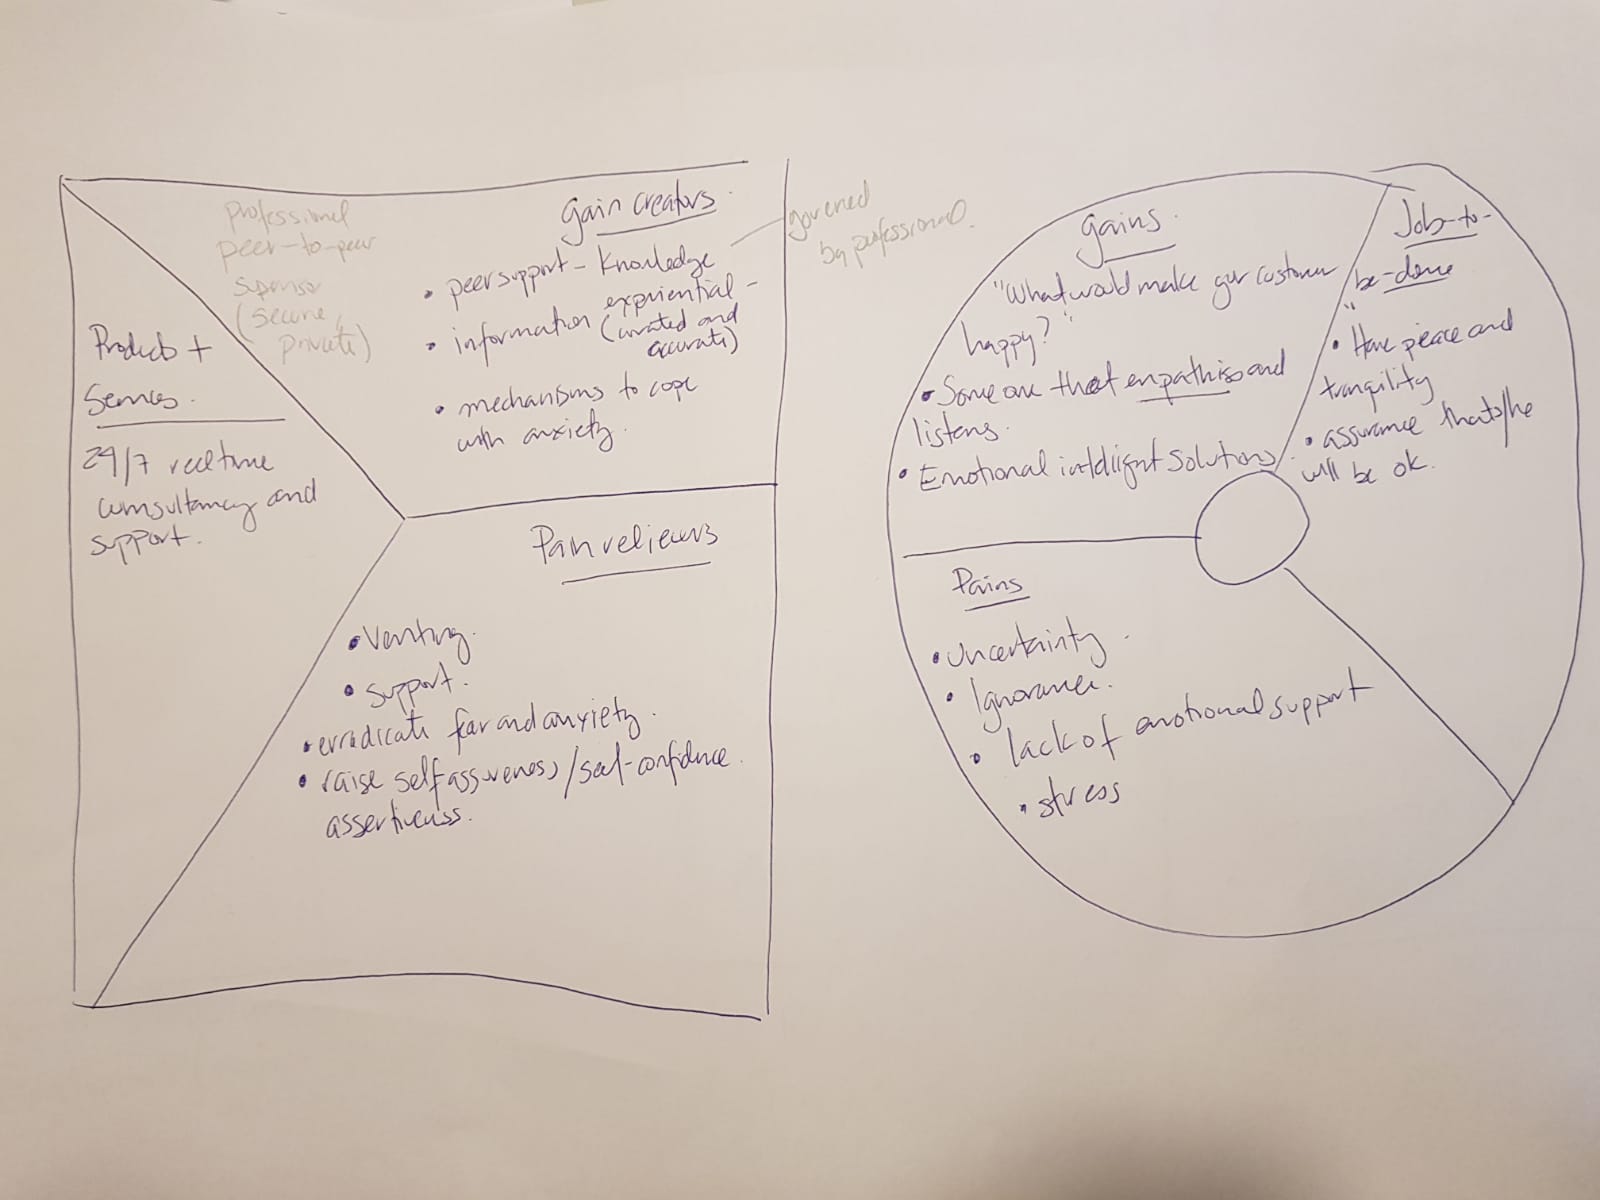 professional
peer-to-peer
(secure,
private)
Products +
Services.
24/7 realtime
cumsultancy and
support.
Gain creators.
governed
by professional.
• peer support - Knowledge
expriential -
• information (curated and
accurate)
• mechanisms to cope
with anxiety.
Pain relievers
• Venting.
• Support.
• erradicate fear and anxiety.
• raise self assureness/self-confidence.
assertiveness.
Gains.
"What would make our customer
happy?"
• Someone that empathises and
listens.
• Emotional intelligent Solutions.
Job-to-
be-done
• Have peace and
tranquility
• assurance that s/he
will be ok.
Pains
• Uncertainty.
• Ignorance.
• lack of emotional support
• stress